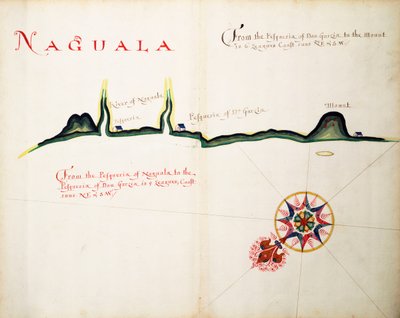 NAGUALA
From the Pesqueria of Don Garzia to the Mount
is 6 Leagues Coast runs N.E. & S.W.
River of Naguala
Pesqueria
Pesqueria of Dn Garzia
Mount
From the Pesqueria of Naguala to the
Pesqueria of Don Garzia is 4 Leagues, Coast
runs N.E. & S.W.